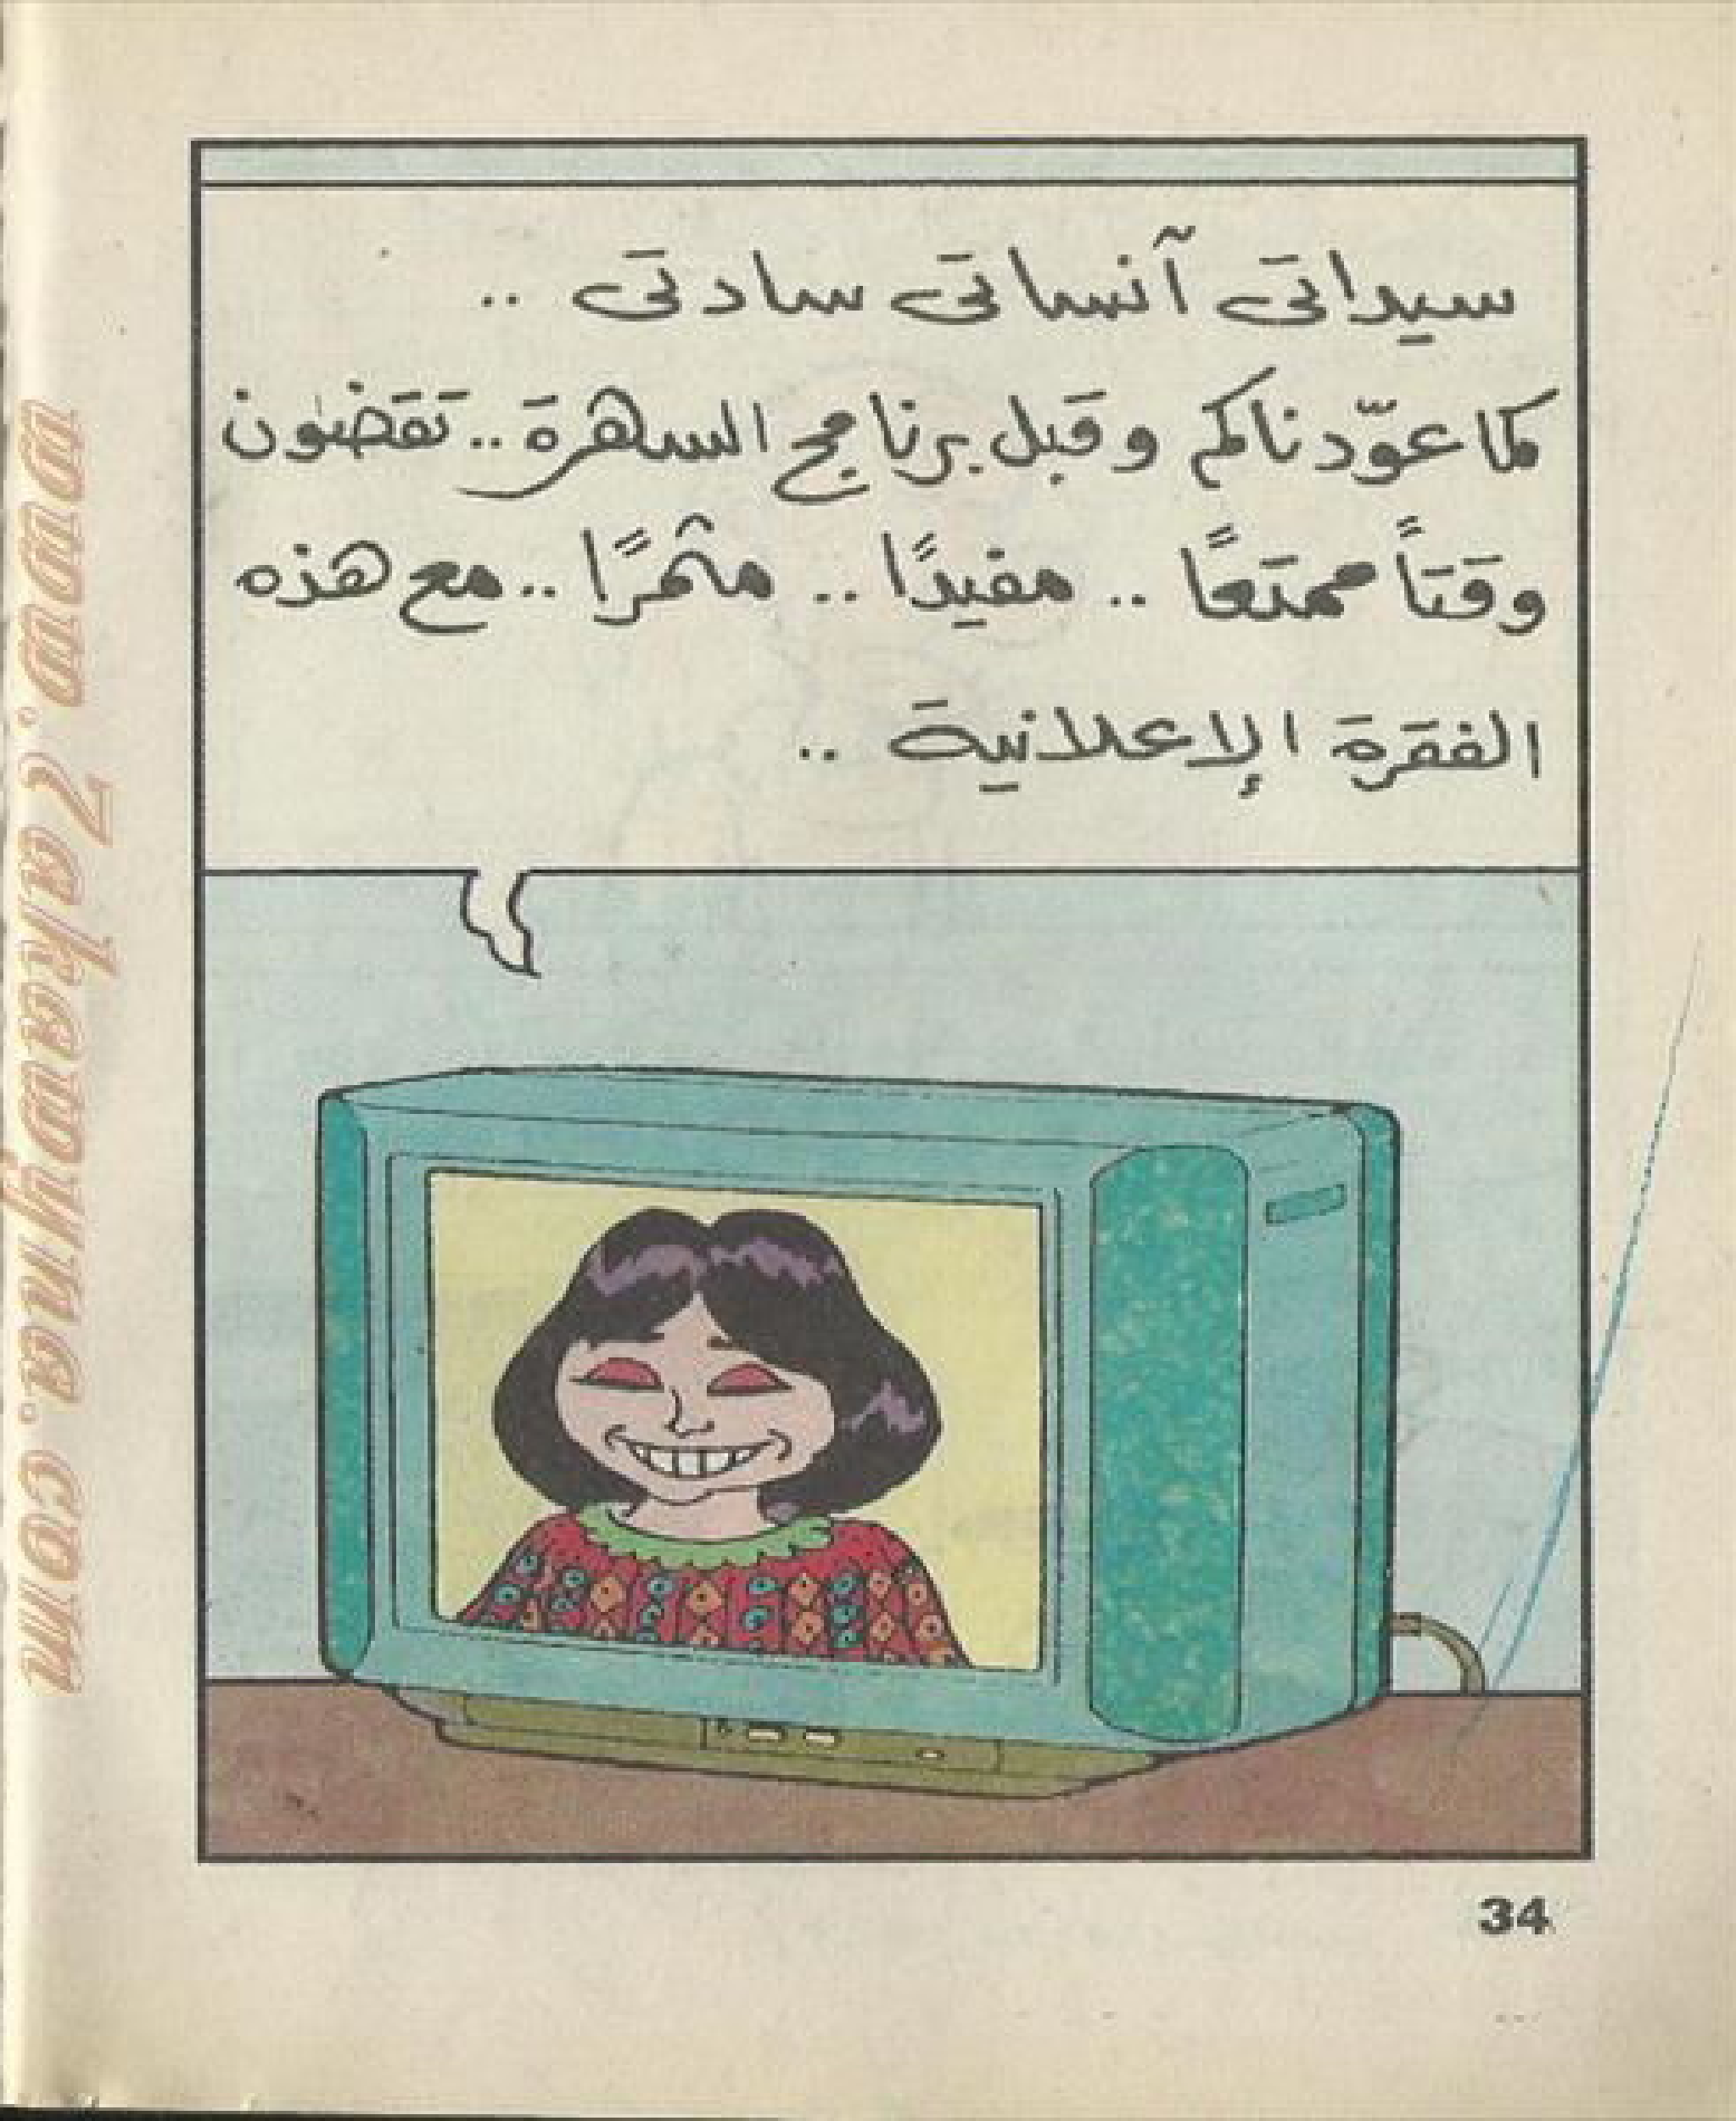 سيداتى آنساتى سادتى ..
كما عوّدناكم وقبل برنامج السهرة .. تقضون
وقتاً ممتعًا .. مفيدًا .. مثمرًا .. مع هذه
الفقرة الإعلانية ..
34
www.Zakawyna.com